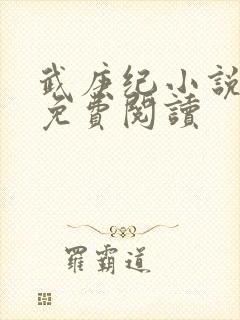 武庚纪小說
免費閱讀
羅霸道